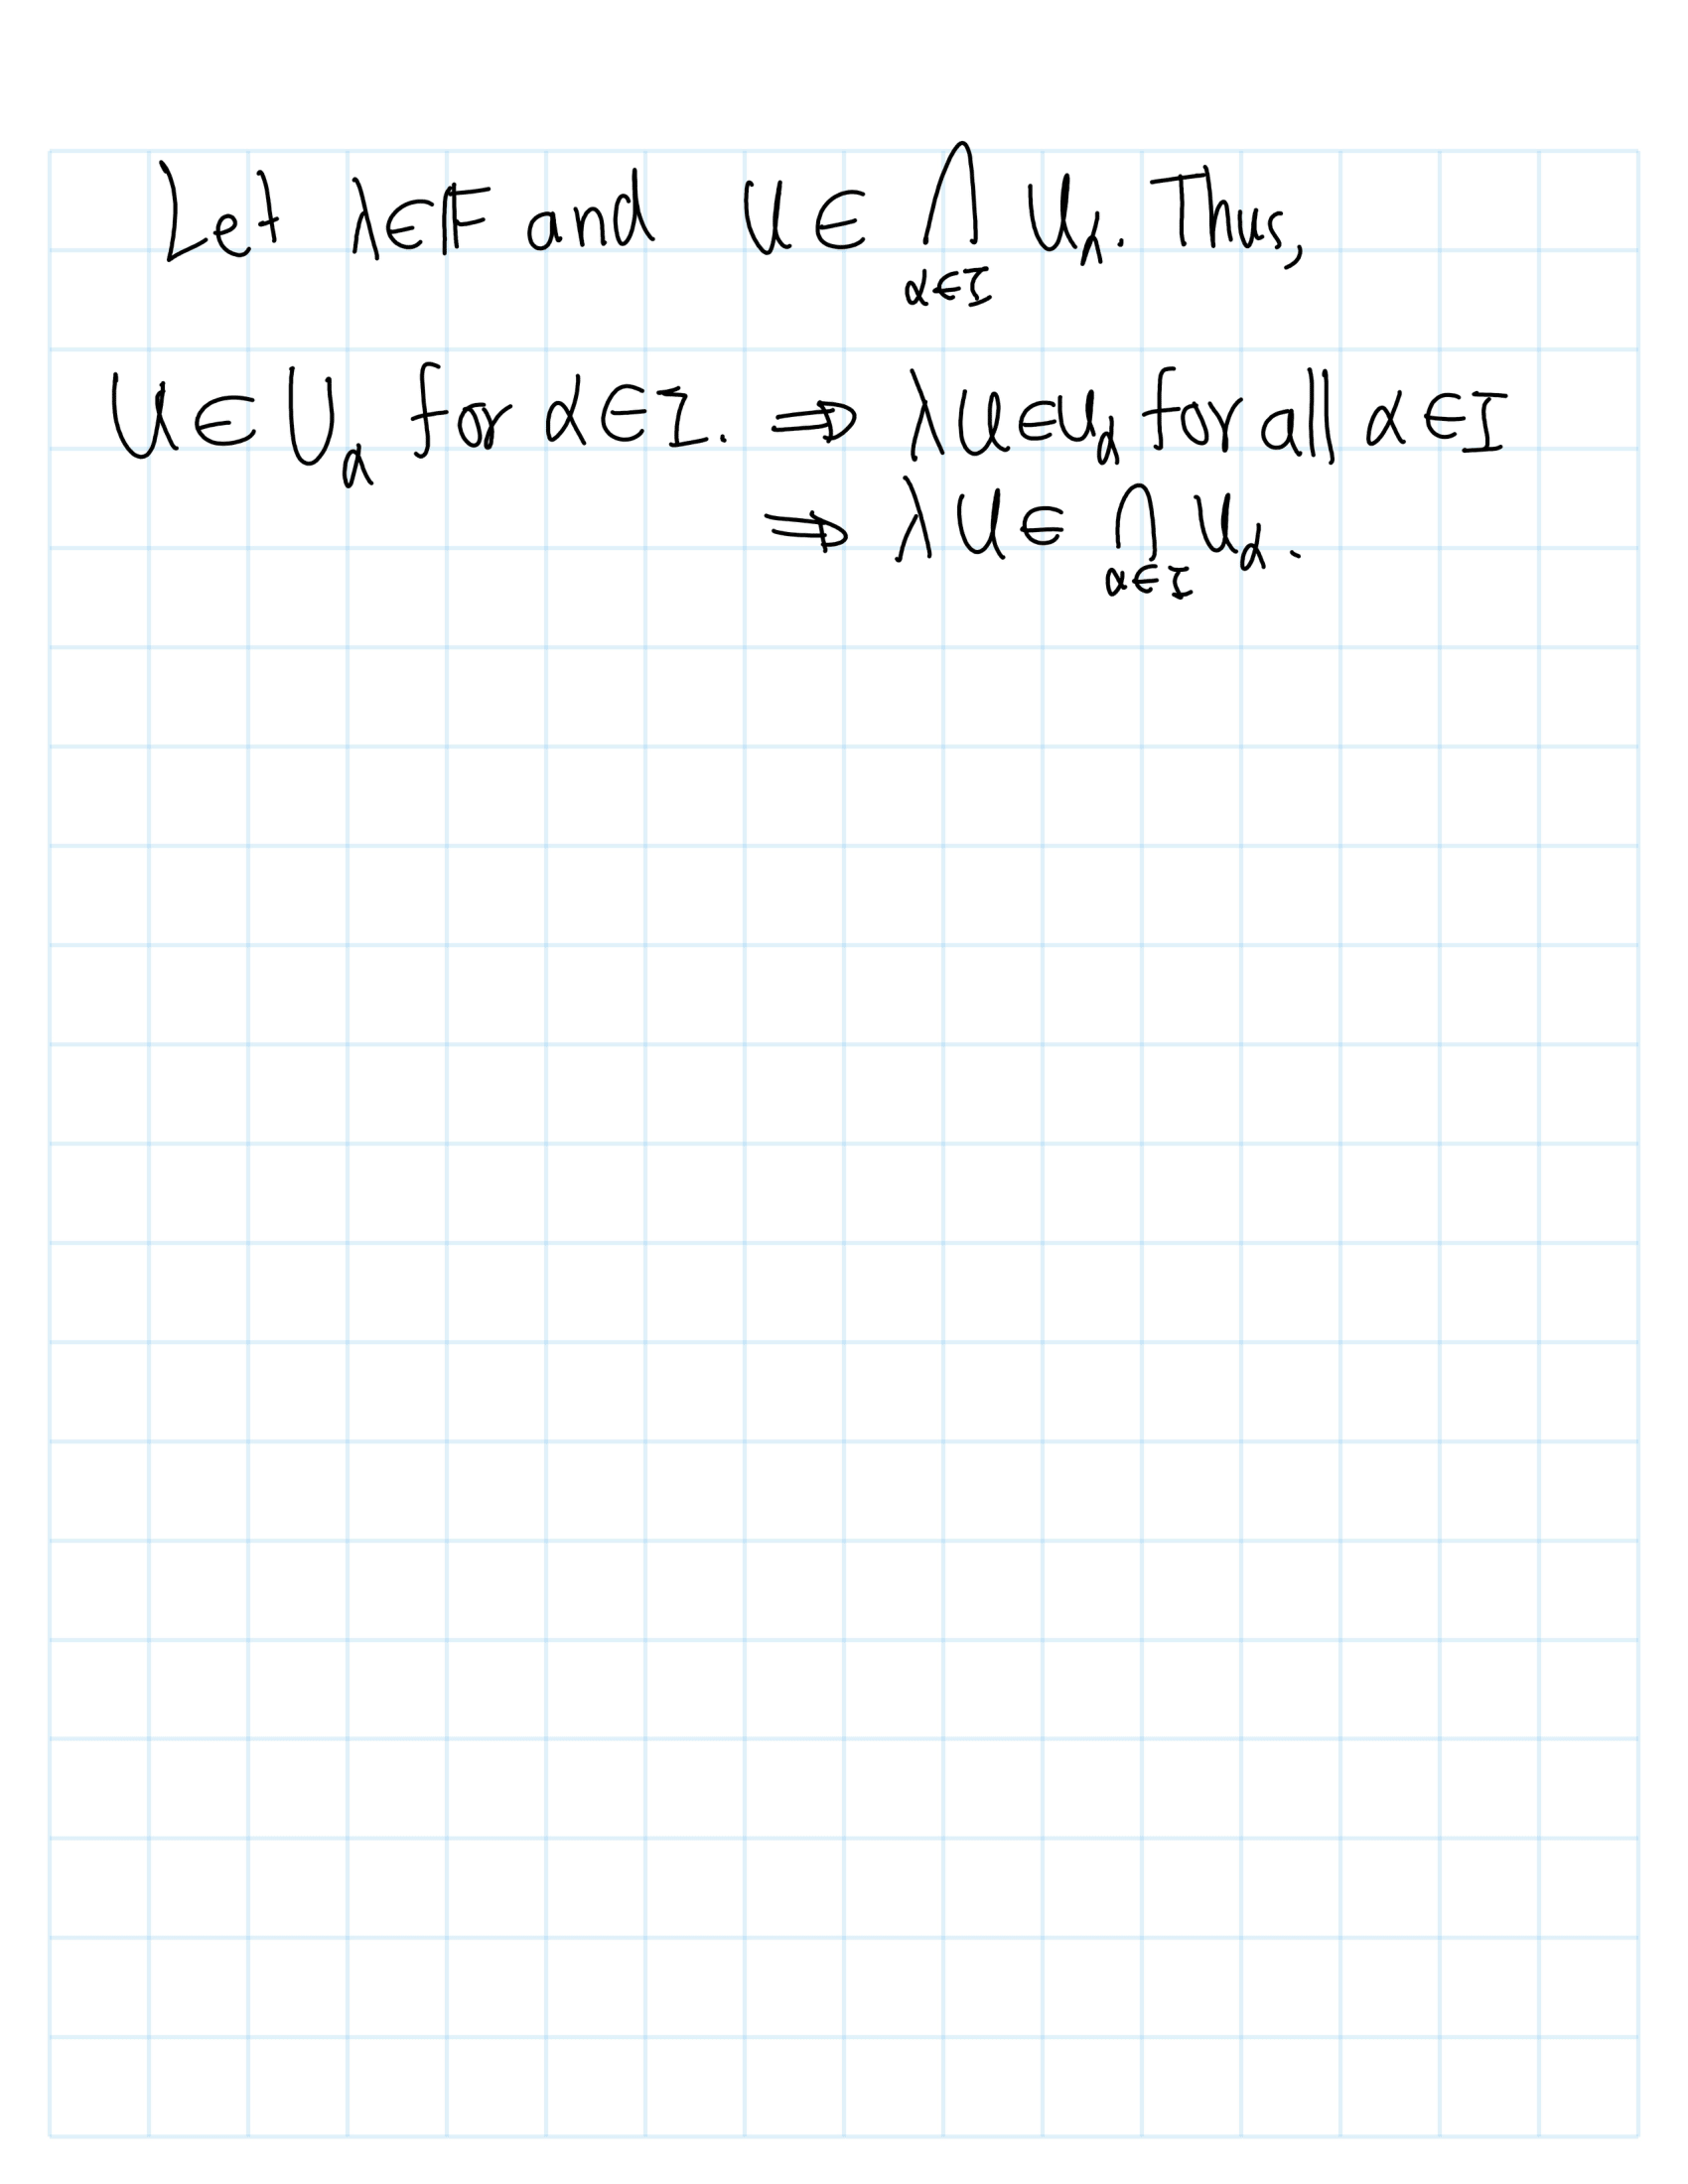 Let λ∈F and u∈ ⋂ U_α. Thus,
α∈I
u∈U_α for α∈I. ⇒ λu∈U_α for all α∈I
⇒ λu∈ ⋂ U_α.
α∈I